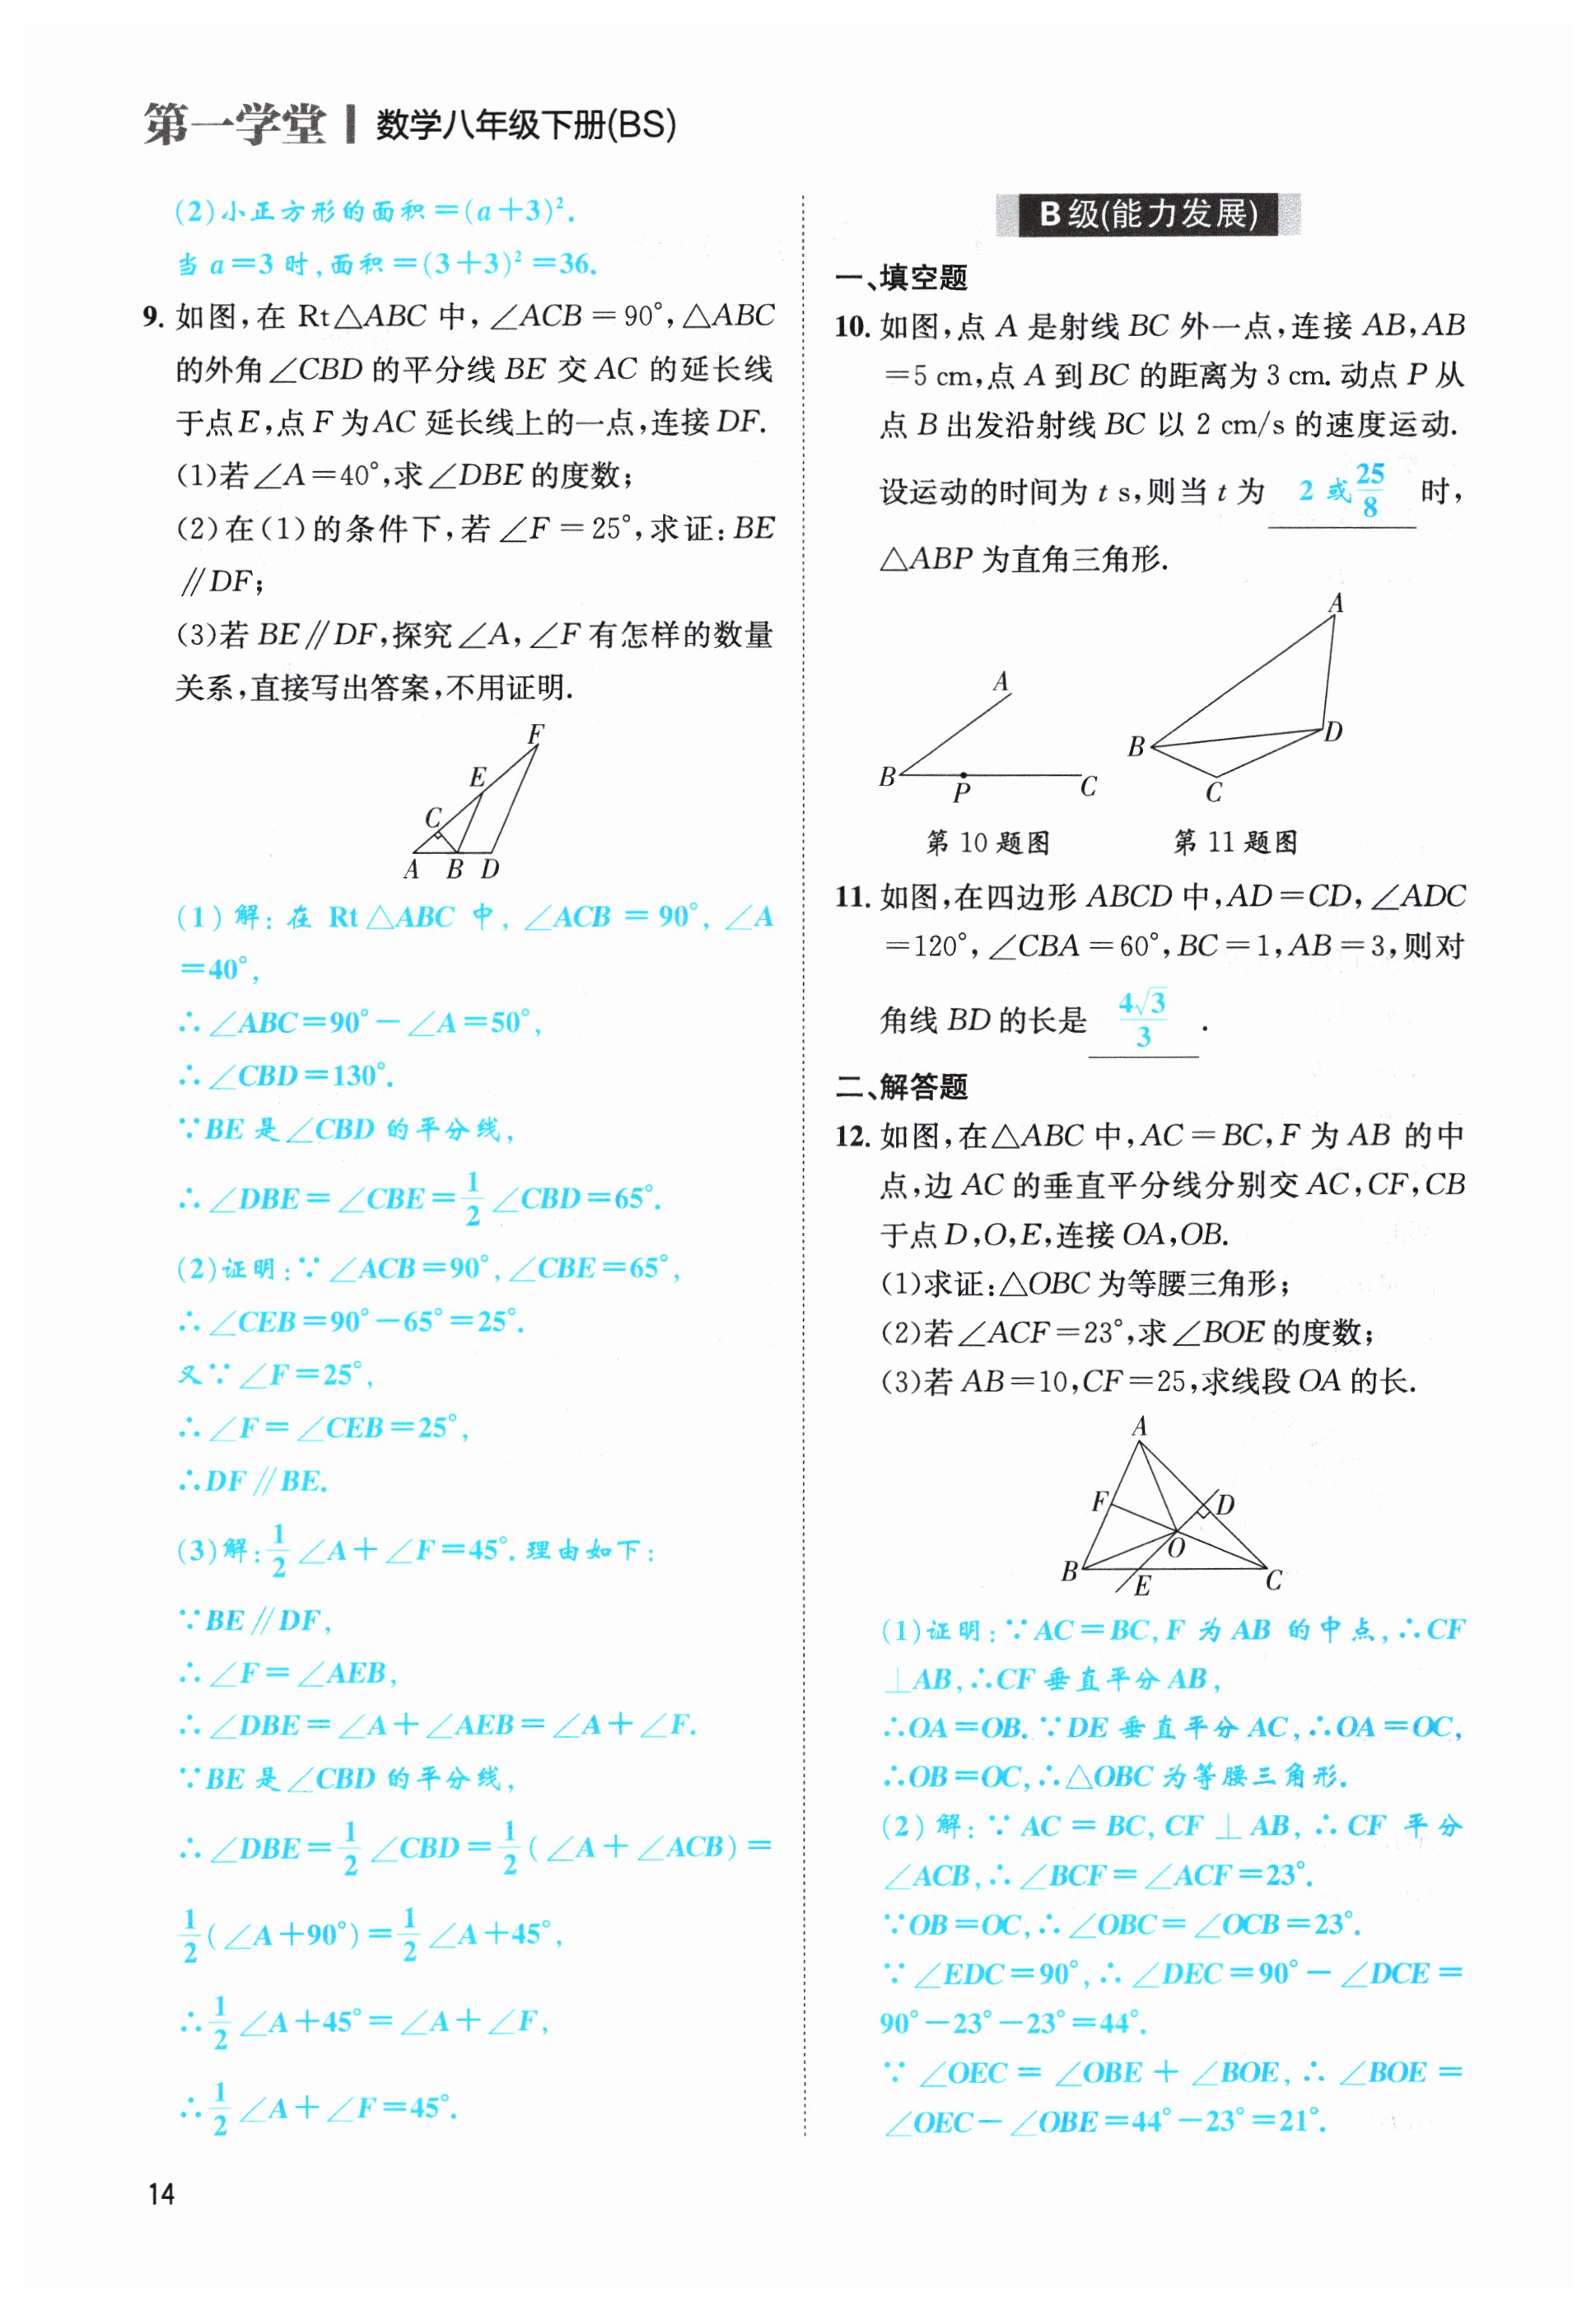 第一学堂 | 数学八年级下册(BS)
(2)小正方形的面积=(a+3)².
当 a=3 时,面积=(3+3)²=36.
9. 如图,在 Rt△ABC 中,∠ACB=90°,△ABC
的外角∠CBD 的平分线 BE 交 AC 的延长线
于点E,点 F 为AC 延长线上的一点,连接 DF.
(1)若∠A=40°,求∠DBE 的度数;
(2)在(1)的条件下,若∠F=25°,求证:BE
∥DF;
(3)若 BE∥DF,探究∠A,∠F 有怎样的数量
关系,直接写出答案,不用证明.
F
E
C
A B D
(1)解:在 Rt△ABC 中,∠ACB=90°,∠A
=40°,
∴∠ABC=90°-∠A=50°,
∴∠CBD=130°.
∵BE 是∠CBD 的平分线,
∴∠DBE=∠CBE=1/2∠CBD=65°.
(2)证明:∵∠ACB=90°,∠CBE=65°,
∴∠CEB=90°-65°=25°.
又∵∠F=25°,
∴∠F=∠CEB=25°,
∴DF∥BE.
(3)解:1/2∠A+∠F=45°.理由如下:
∵BE∥DF,
∴∠F=∠AEB,
∴∠DBE=∠A+∠AEB=∠A+∠F.
∵BE 是∠CBD 的平分线,
∴∠DBE=1/2∠CBD=1/2(∠A+∠ACB)=
1/2(∠A+90°)=1/2∠A+45°,
∴1/2∠A+45°=∠A+∠F,
∴1/2∠A+∠F=45°.
14
B 级(能力发展)
一、填空题
10. 如图,点 A 是射线 BC 外一点,连接 AB,AB
=5 cm,点 A 到BC 的距离为 3 cm.动点 P 从
点 B 出发沿射线 BC 以 2 cm/s 的速度运动.
设运动的时间为 t s,则当 t 为 2 或25/8 时,
△ABP 为直角三角形.
A
B P C
A
B D
C
第 10 题图 第 11 题图
11. 如图,在四边形 ABCD 中,AD=CD,∠ADC
=120°,∠CBA=60°,BC=1,AB=3,则对
角线 BD 的长是 4√3/3 .
二、解答题
12. 如图,在△ABC 中,AC=BC,F 为 AB 的中
点,边 AC 的垂直平分线分别交 AC,CF,CB
于点 D,O,E,连接 OA,OB.
(1)求证:△OBC 为等腰三角形;
(2)若∠ACF=23°,求∠BOE 的度数;
(3)若 AB=10,CF=25,求线段 OA 的长.
A
F D
O
B E C
(1)证明:∵AC=BC,F 为 AB 的中点,∴CF
⊥AB,∴CF 垂直平分 AB,
∴OA=OB.∵DE 垂直平分 AC,∴OA=OC,
∴OB=OC,∴△OBC 为等腰三角形.
(2)解:∵AC=BC,CF⊥AB,∴CF 平分
∠ACB,∴∠BCF=∠ACF=23°.
∵OB=OC,∴∠OBC=∠OCB=23°.
∵∠EDC=90°,∴∠DEC=90°-∠DCE=
90°-23°-23°=44°.
∵∠OEC=∠OBE+∠BOE,∴∠BOE=
∠OEC-∠OBE=44°-23°=21°.